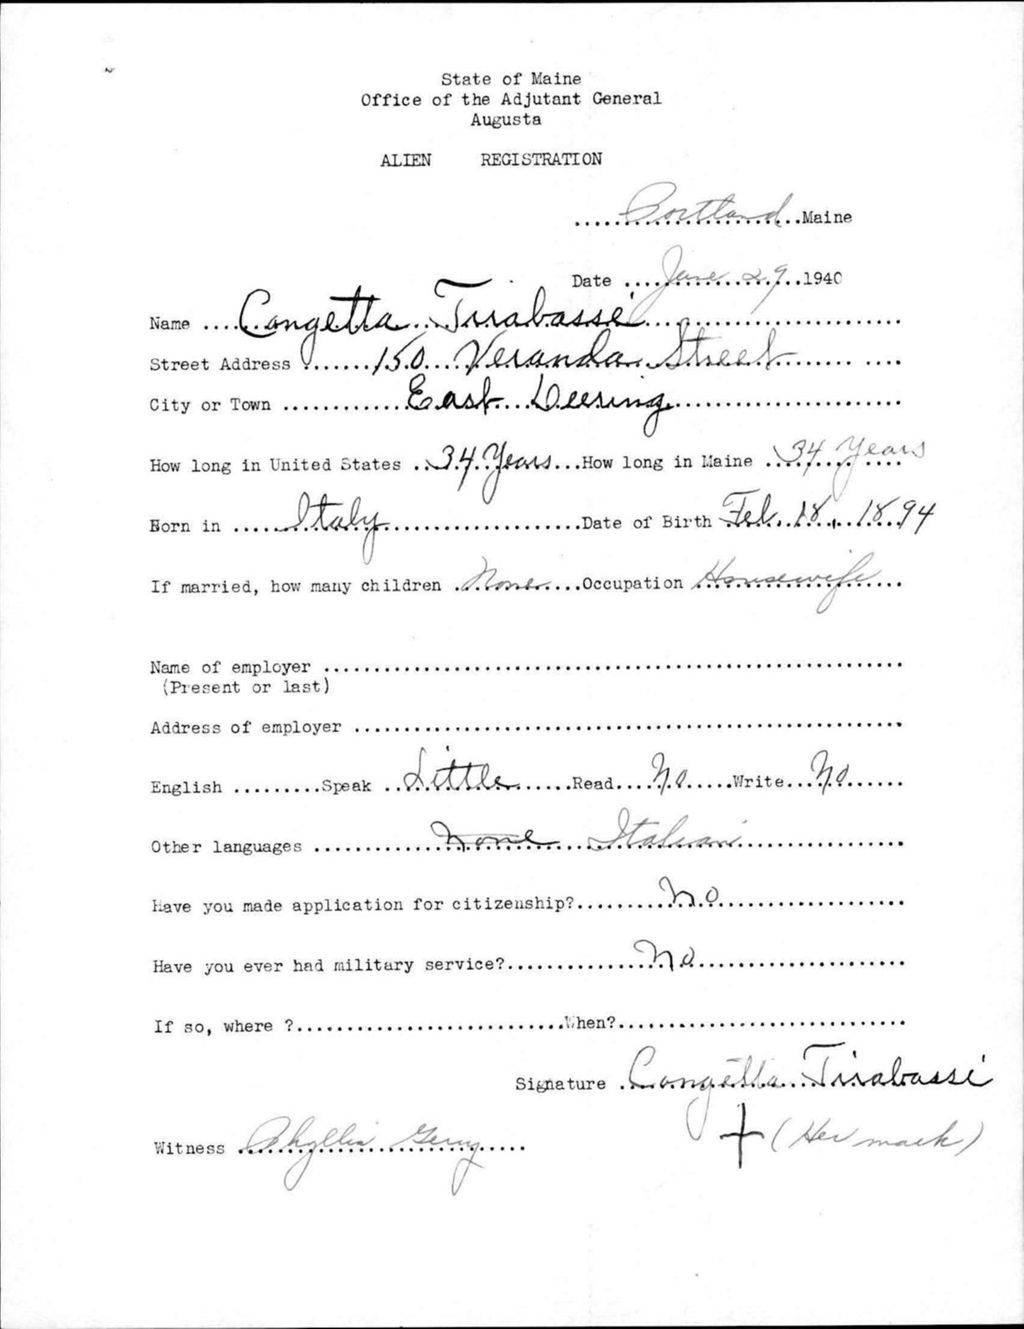 State of Maine
Office of the Adjutant General
Augusta
ALIEN REGISTRATION
Portland Maine
Date June 29 1940
Name Congetta Tirabassi
Street Address 150 Veranda Street
City or Town East Deering
How long in United States 34 Years How long in Maine 34 Years
Born in Italy Date of Birth Feb. 18, 1894
If married, how many children None Occupation Housewife
Name of employer
(Present or last)
Address of employer
English Speak Little Read No Write No
Other languages None Italian
Have you made application for citizenship? No
Have you ever had military service? No
If so, where ? When?
Signature Congetta Tirabassi
Witness Phyllis + (Her mark)